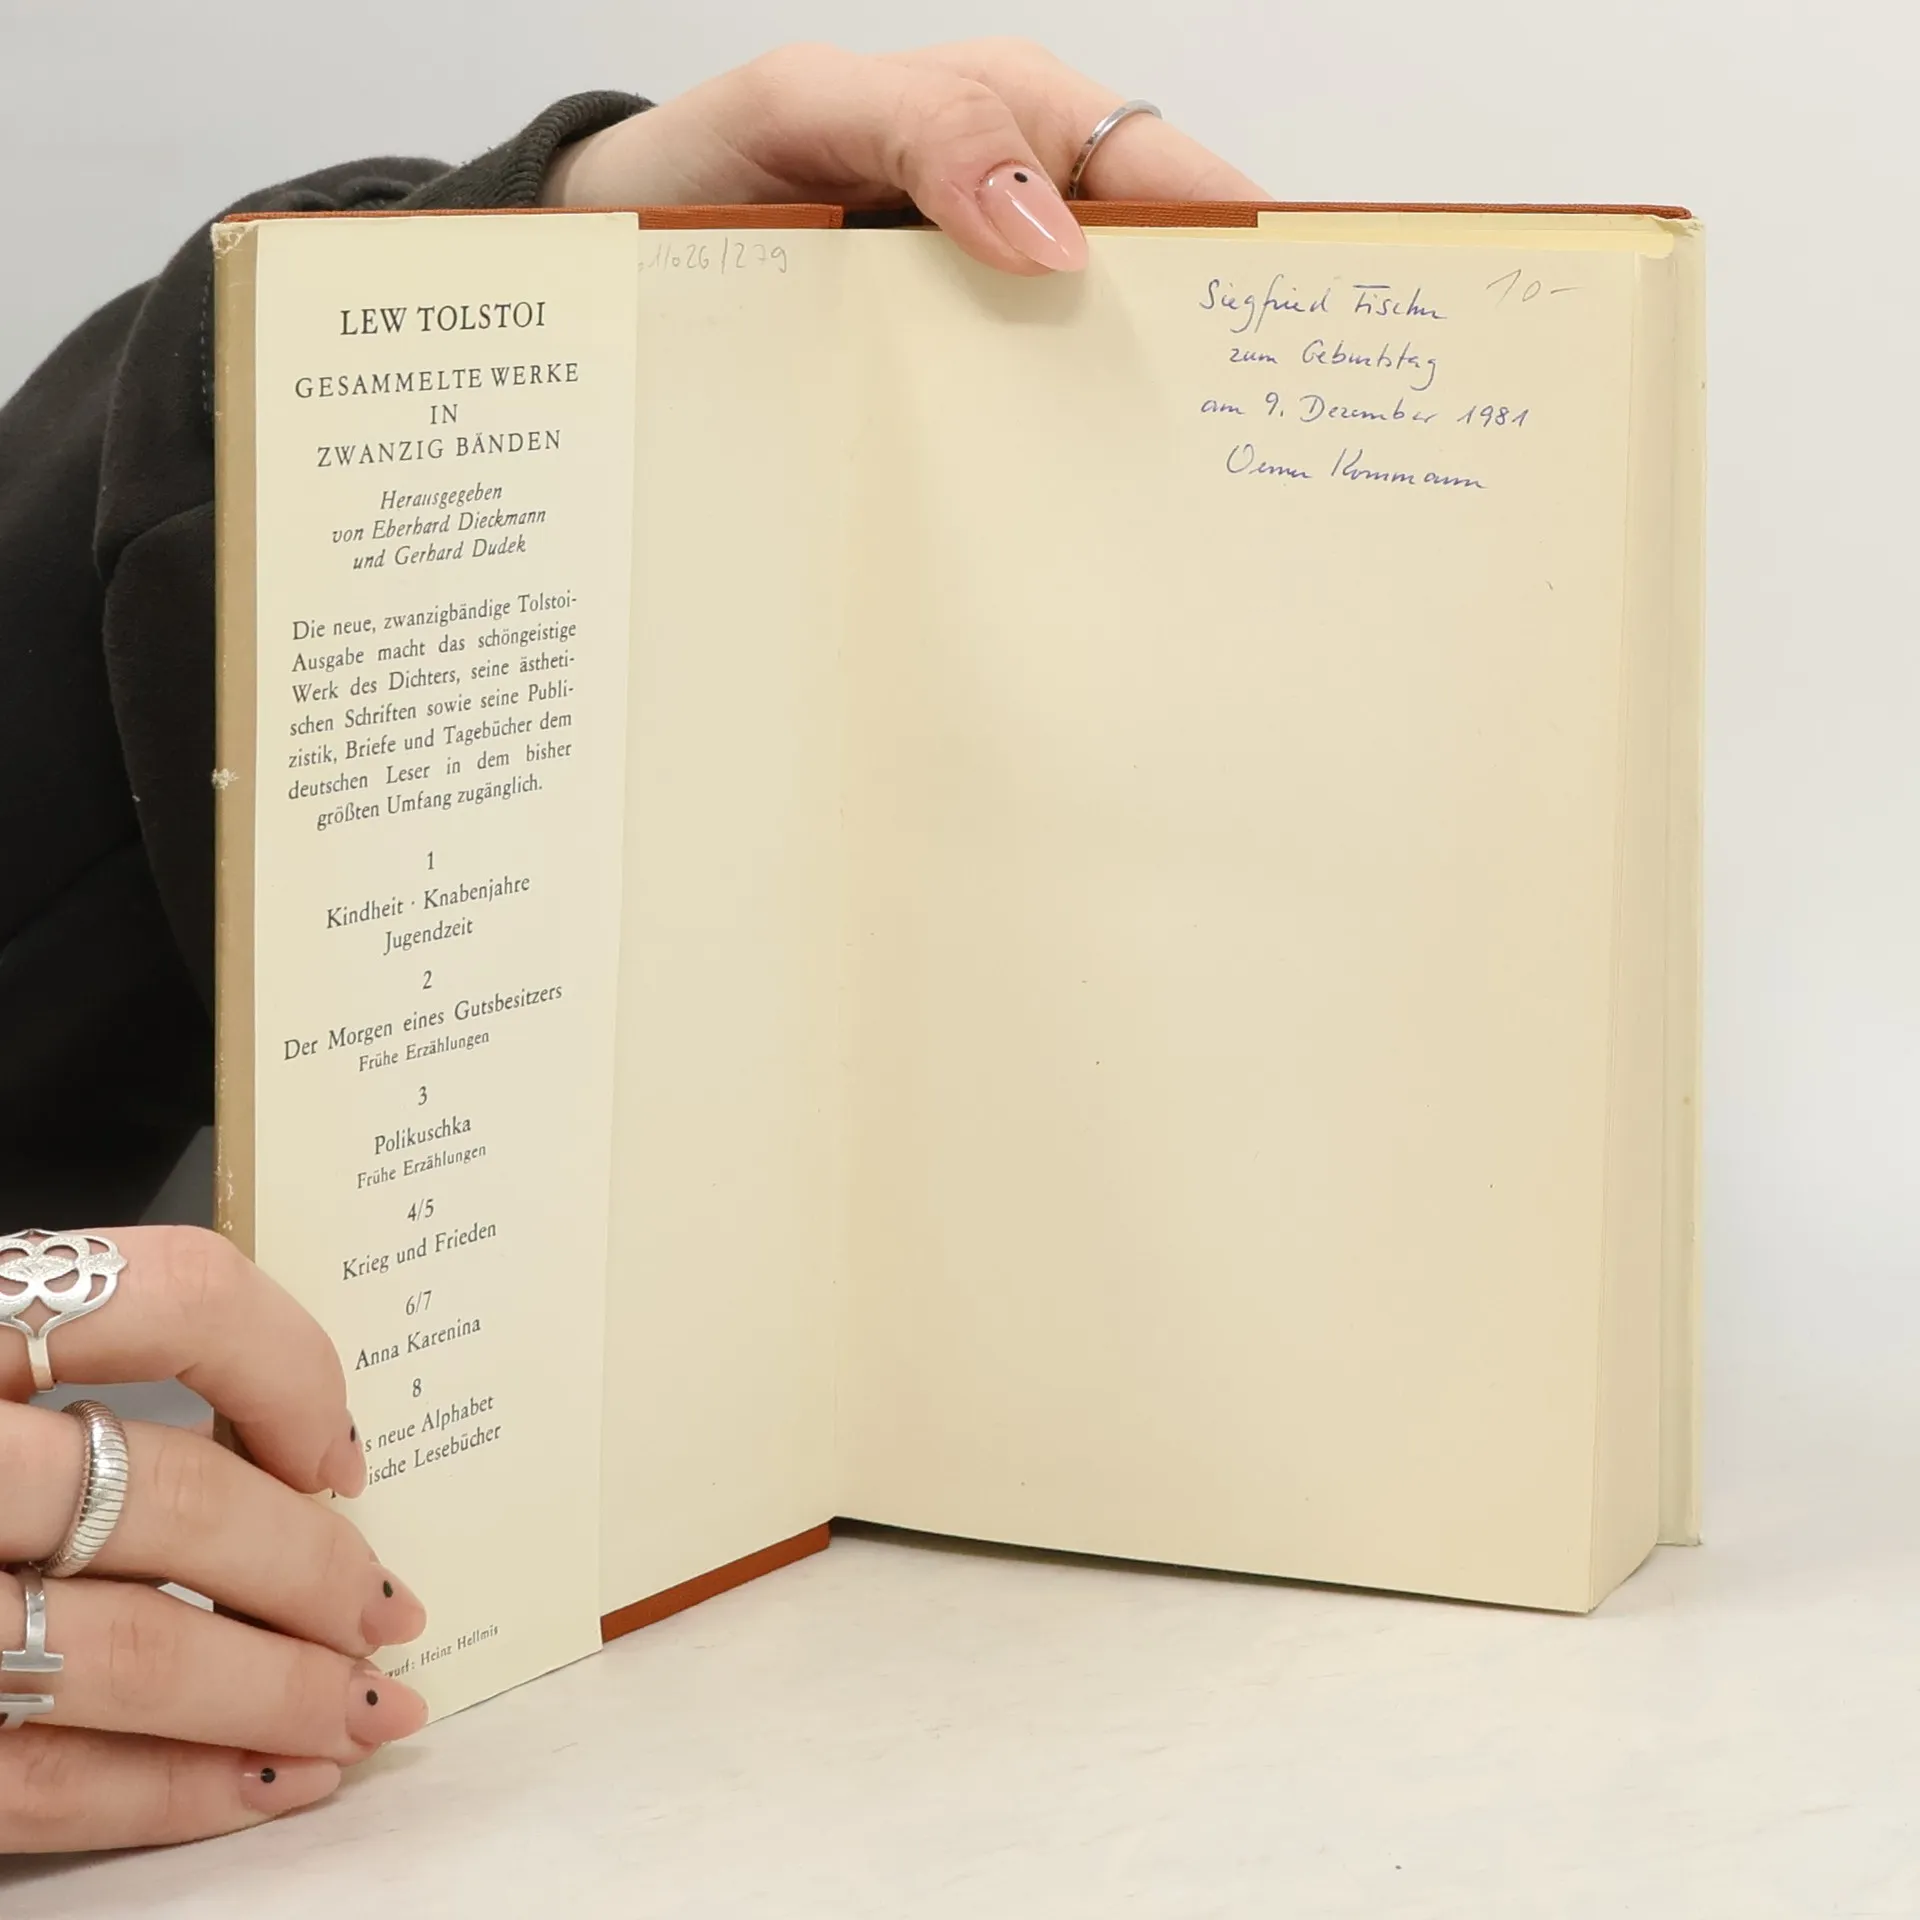 LEW TOLSTOI
GESAMMELTE WERKE
IN
ZWANZIG BÄNDEN
Herausgegeben
von Eberhard Dieckmann
und Gerhard Dudek
Die neue, zwanzigbändige Tolstoi-
Ausgabe macht das schöngeistige
Werk des Dichters, seine ästheti-
schen Schriften sowie seine Publi-
zistik, Briefe und Tagebücher dem
deutschen Leser in dem bisher
größten Umfang zugänglich.
1
Kindheit · Knabenjahre
Jugendzeit
2
Der Morgen eines Gutsbesitzers
Frühe Erzählungen
3
Polikuschka
Frühe Erzählungen
4/5
Krieg und Frieden
6/7
Anna Karenina
8
s neue Alphabet
ische Lesebücher
wurf: Heinz Hellmis
11026/279
10-
Siegfried Fischer
zum Geburtstag
am 9. Dezember 1981